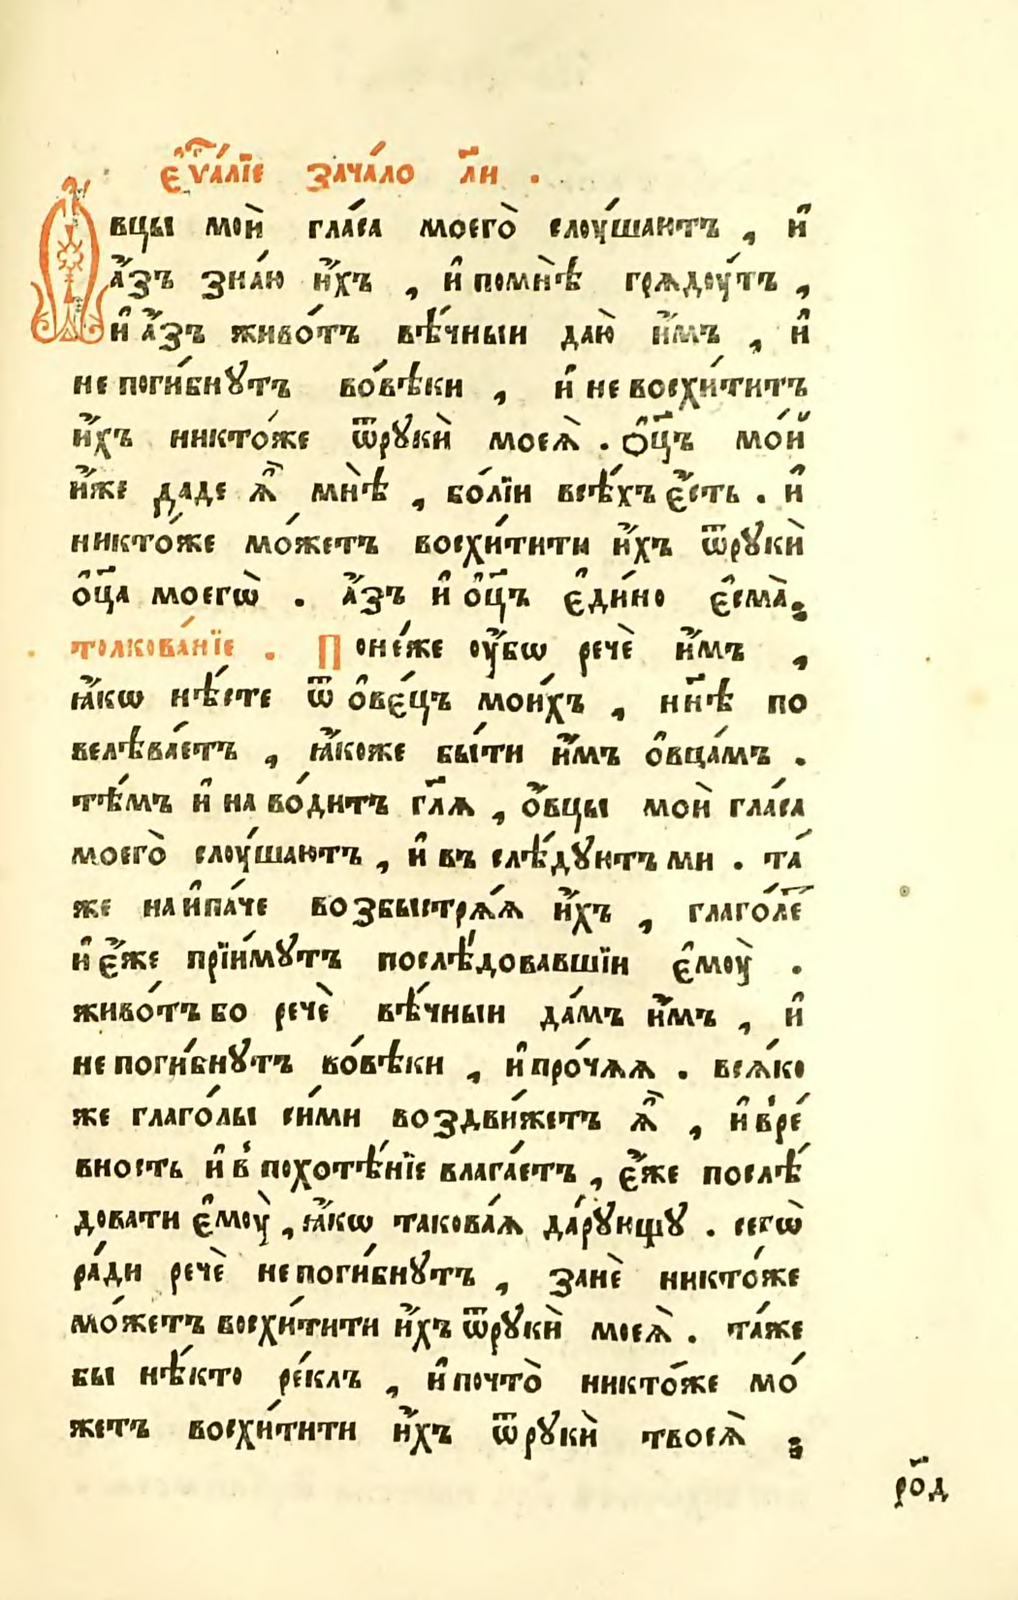 є҆ѵⷢ҇а́лїе зача́ло л҃и .
Овцы мои̑ гла́са моего̀ слоу́шаютъ , и҆
а҆́зъ зна́ю и҆́хъ , и҆ помнѣ̀ грѧдоу́тъ ,
и҆ а҆́зъ живо́тъ вѣ́чныи даю̀ и҆́мъ , и҆
не поги́бнꙋтъ во́вѣки , и҆ не восхи́титъ
и҆́хъ никто́же ѿрꙋки̑ моеѧ̀ . ѻ҆ц҃ъ мо́й
и҆́же даде ѧ҆̀ мнѣ̀ , бо́лїи всѣ́хъ є҆́сть . и҆
никто́же мо́жетъ восхи́тити и҆́хъ ѿрꙋки̑
о҆ц҃а моегѡ̀ . а҆́зъ и҆ о҆ц҃ъ є҆ди́но є҆сма̀ ;
толкова́нїе . Поне́же оу҆́бѡ речѐ и҆́мъ ,
ꙗ҆́кѡ нѣ́сте ѿ о҆ве́цъ мои́хъ , нн҃ѣ по
велѣва́етъ , ꙗ҆́коже бы́ти и҆́мъ о҆вца́мъ .
тѣ́мъ и҆ на во́дитъ гл҃ѧ , о҆́вцы мои̑ гла́са
моего̀ слоу́шаютъ , и҆ въ слѣ́дꙋютъ ми . та́
же наипа́че возбыстрѧ́ѧ и҆́хъ , глаго́леⷮ
и҆ є҆́же прїи́мꙋтъ послѣ́довавшїи є҆моу̀ .
живо́тъ бо речѐ вѣ́чныи да́мъ и҆́мъ , и҆
не поги́бнꙋтъ во́вѣки , и҆про́чѧѧ . всѧ́ко
же глаго́лы си́ми воздви́жетъ ѧ҆̀ , и҆ в̾ре́
вность и҆ в̾ похотѣ́нїе влага́етъ , є҆́же послѣ́
довати є҆моу̀ , ꙗ҆́кѡ такова́ѧ да́рꙋющꙋ . сегѡ̀
ра́ди речѐ не поги́бнꙋтъ , занѐ никто́же
мо́жетъ восхи́тити и҆́хъ ѿрꙋки̑ моеѧ̀ . та́же
бы нѣ́кто ре́клъ , и҆ почто̀ никто́же мо́
жетъ восхи́тити и҆́хъ ѿ рꙋки̑ твоеѧ̀ ;
ро҃д